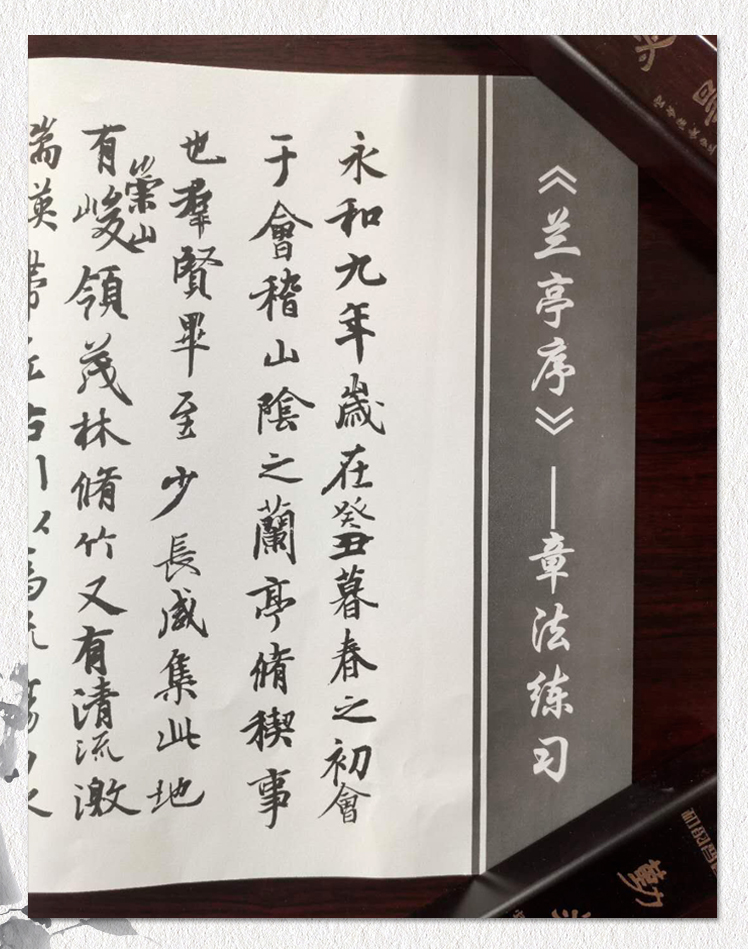 《兰亭序》——章法练习
永和九年歲在癸丑暮春之初會
于會稽山陰之蘭亭脩稧事
也羣賢畢至少長咸集此地
有崇山峻領茂林脩竹又有清流激
湍英帶左右引以為流觴曲水